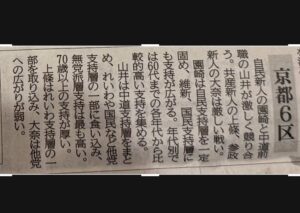 京都6区
自民新人の園崎と中道前
職の山井が激しく競り合
う。共産新人の上條、参政
新人の大奈は厳しい戦い。
園崎は自民支持層を一定
固め、維新、国民支持層に
も支持が広がる。年代別で
は60代までの各年代から比
較的高い支持を集める。
山井は中道支持層をまと
め、れいわや国民など他党
支持層の一部に食い込み、
無党派層支持は最も高い。
70歳以上の支持が厚い。
上條はれいわ支持層の一
部を取り込み、大奈は他党
への広がりが弱い。